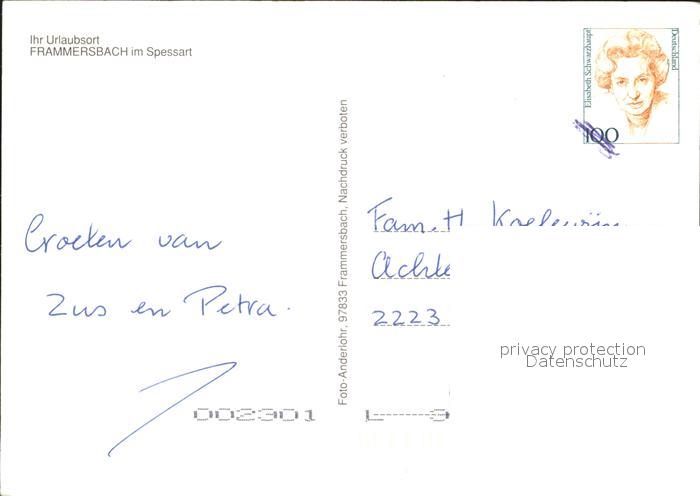 Ihr Urlaubsort
FRAMMERSBACH im Spessart
Elisabeth Schwarzhaupt
Deutschland
100
Foto-Anderlohr, 97833 Frammersbach, Nachdruck verboten
Groeten van
Zus en Petra.
Fam. H
2223
privacy protection
Datenschutz
002301